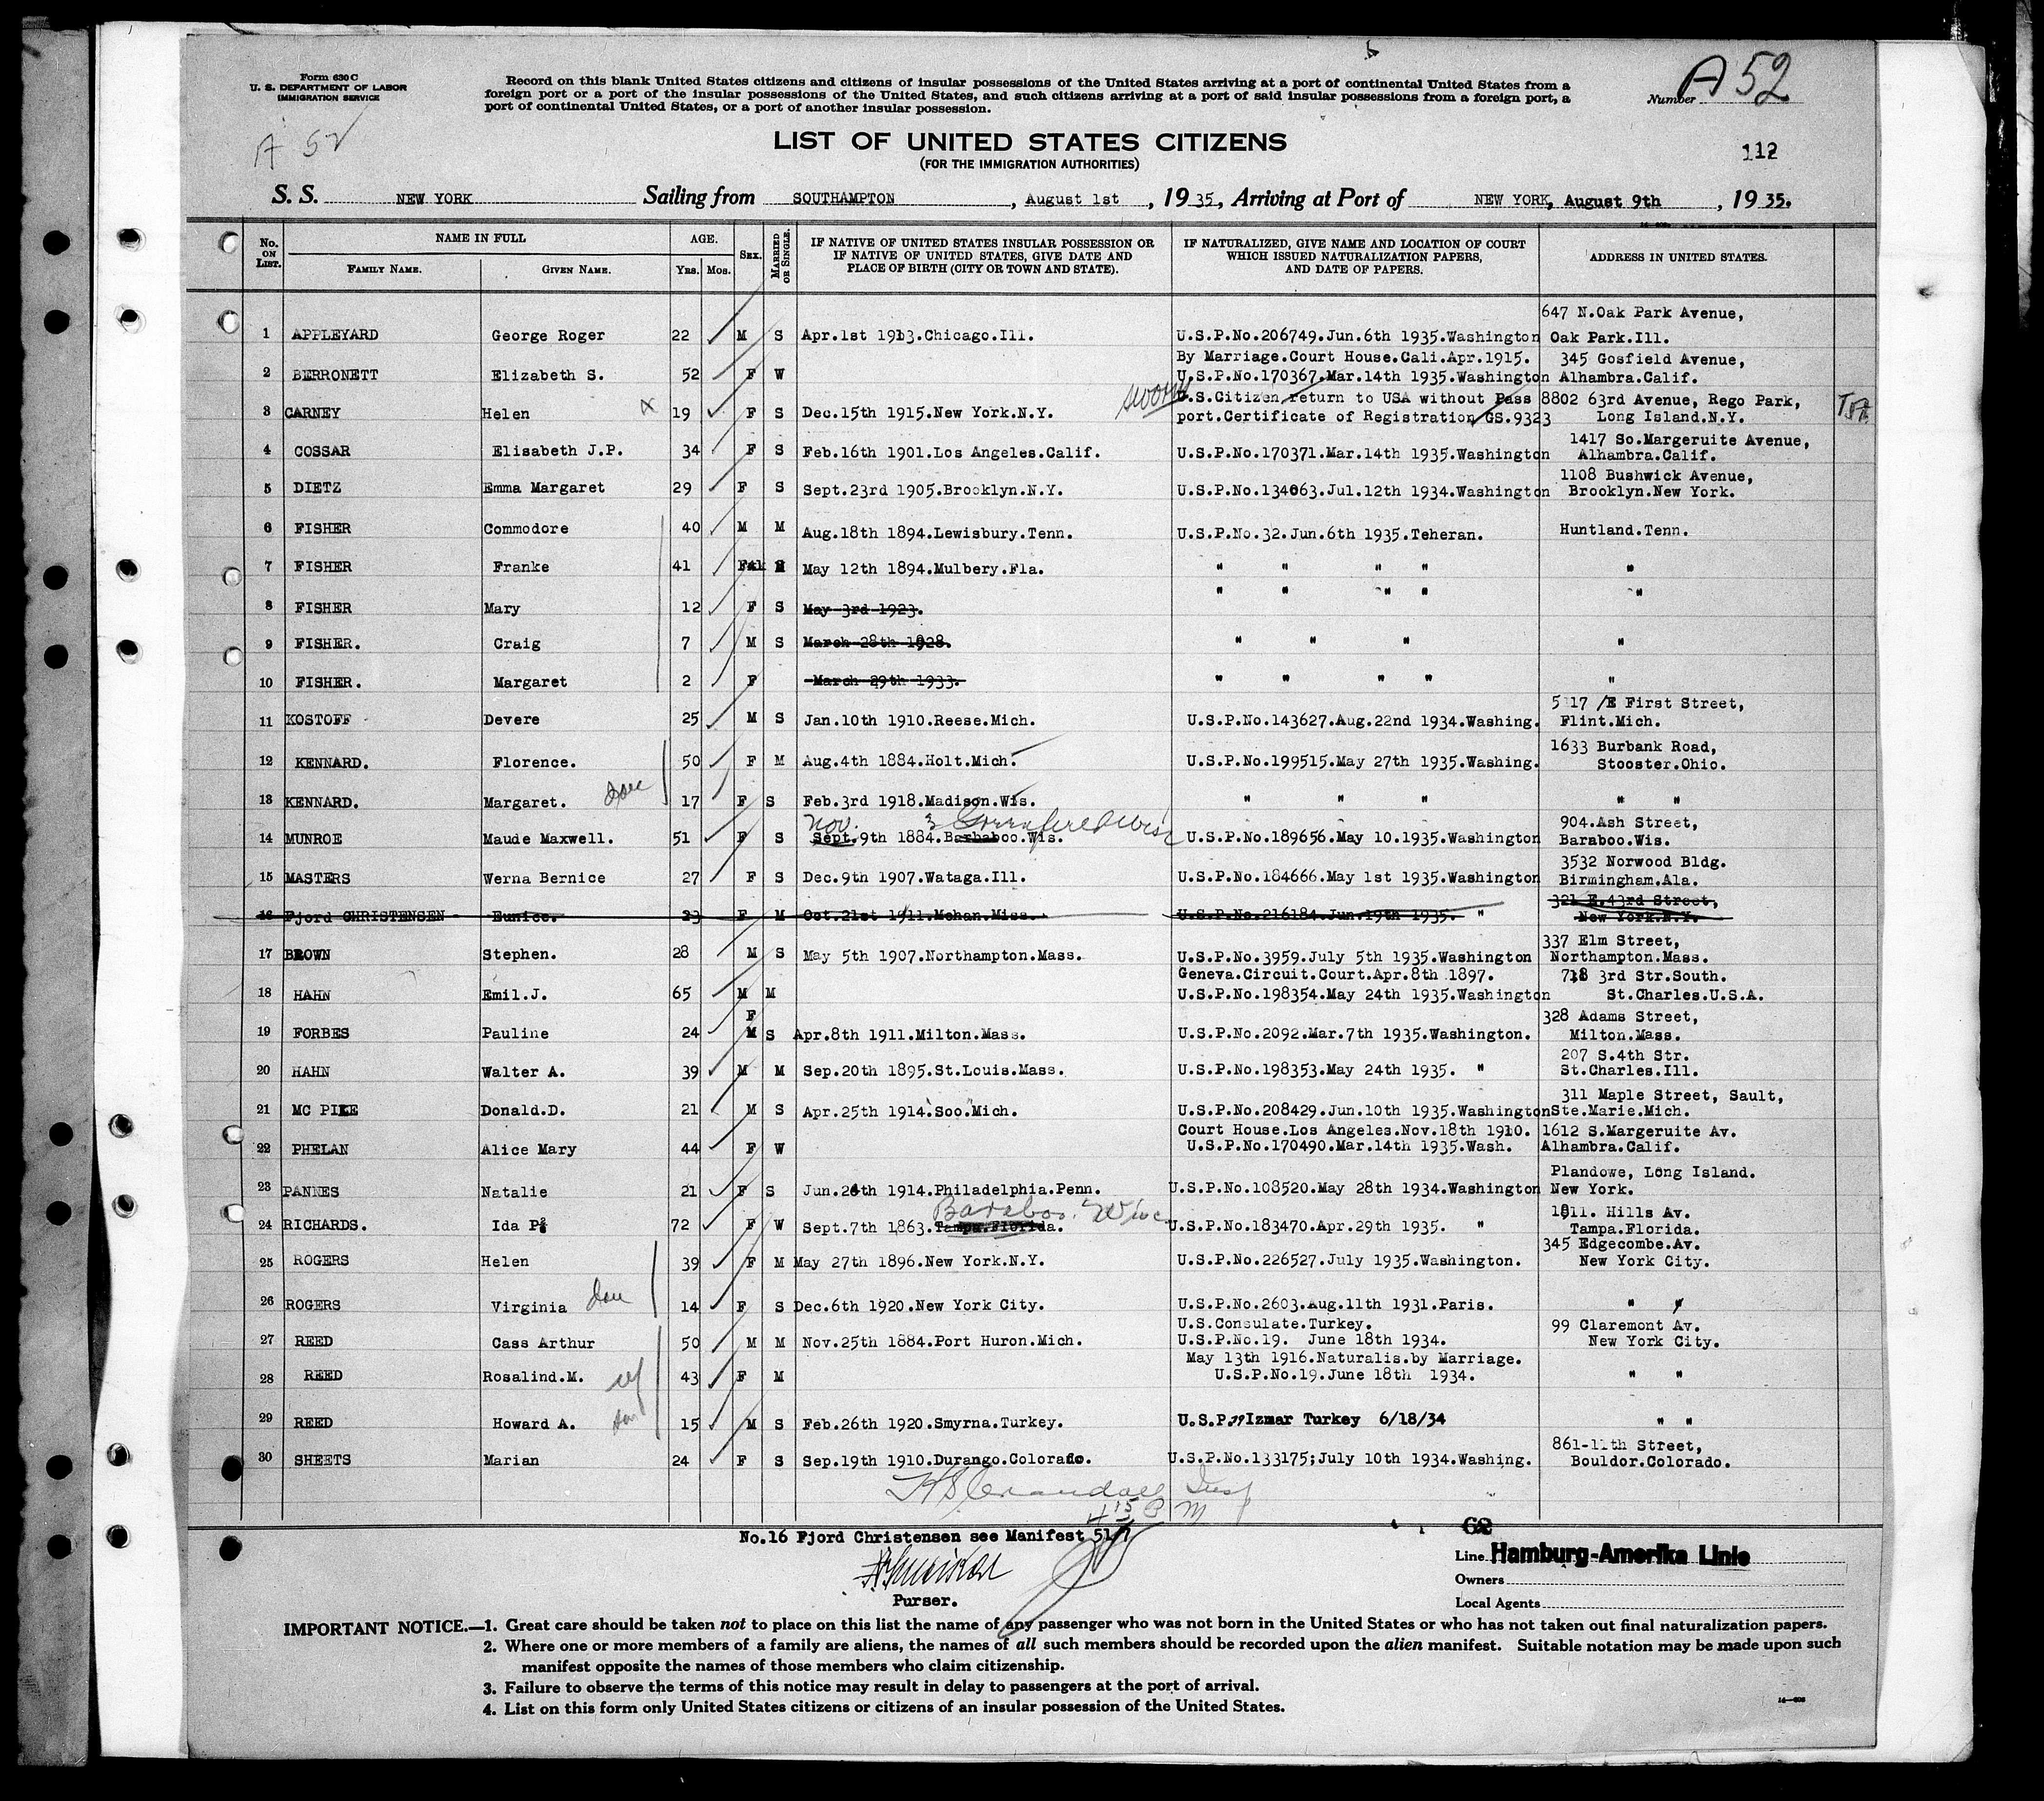 Form 630 C
U. S. DEPARTMENT OF LABOR
IMMIGRATION SERVICE
Record on this blank United States citizens and citizens of insular possessions of the United States arriving at a port of continental United States from a
foreign port or a port of the insular possessions of the United States, and such citizens arriving at a port of said insular possessions from a foreign port, a
port of continental United States, or a port of another insular possession.
Number A 52
A 52
LIST OF UNITED STATES CITIZENS
(FOR THE IMMIGRATION AUTHORITIES)
112
S. S. NEW YORK Sailing from SOUTHAMPTON, August 1st, 1935, Arriving at Port of NEW YORK, August 9th, 1935.
No. ON LIST. NAME IN FULL FAMILY NAME. GIVEN NAME. AGE. Yrs. Mos. SEX. MARRIED OR SINGLE. IF NATIVE OF UNITED STATES INSULAR POSSESSION OR IF NATIVE OF UNITED STATES, GIVE DATE AND PLACE OF BIRTH (CITY OR TOWN AND STATE). IF NATURALIZED, GIVE NAME AND LOCATION OF COURT WHICH ISSUED NATURALIZATION PAPERS, AND DATE OF PAPERS. ADDRESS IN UNITED STATES.
647 N.Oak Park Avenue,
1 APPLEYARD George Roger 22 M S Apr.1st 1913.Chicago.Ill. U.S.P.No.206749.Jun.6th 1935.Washington Oak Park.Ill.
By Marriage.Court House.Cali.Apr.1915. 345 Gosfield Avenue,
2 BERRONETT Elizabeth S. 52 F W U.S.P.No.170367.Mar.14th 1935.Washington Alhambra.Calif.
sworn U.S.Citizen return to USA without Pass 8802 63rd Avenue, Rego Park,
3 CARNEY Helen x 19 F S Dec.15th 1915.New York.N.Y. port.Certificate of Registration GS.9323 Long Island.N.Y.
1417 So.Margeruite Avenue,
4 COSSAR Elisabeth J.P. 34 F S Feb.16th 1901.Los Angeles.Calif. U.S.P.No.170371.Mar.14th 1935.Washington Alhambra.Calif.
1108 Bushwick Avenue,
5 DIETZ Emma Margaret 29 F S Sept.23rd 1905.Brooklyn.N.Y. U.S.P.No.134063.Jul.12th 1934.Washington Brooklyn.New York.
6 FISHER Commodore 40 M M Aug.18th 1894.Lewisbury.Tenn. U.S.P.No.32.Jun.6th 1935.Teheran. Huntland.Tenn.
7 FISHER Franke 41 F M May 12th 1894.Mulbery.Fla. " " " " "
8 FISHER Mary 12 F S May 3rd 1923. " " " " "
9 FISHER. Craig 7 M S March 28th 1928. " " " "
10 FISHER. Margaret 2 F March 29th 1933. " " " " "
5117 /E First Street,
11 KOSTOFF Devere 25 M S Jan.10th 1910.Reese.Mich. U.S.P.No.143627.Aug.22nd 1934.Washing. Flint.Mich.
1633 Burbank Road,
12 KENNARD. Florence. 50 F M Aug.4th 1884.Holt.Mich. U.S.P.No.199515.May 27th 1935.Washing. Stooster.Ohio.
13 KENNARD. Margaret. dau 17 F S Feb.3rd 1918.Madison.Wis. " " " " "
Nov. 904.Ash Street,
14 MUNROE Maude Maxwell. 51 F S Sept.9th 1884.Barbaboo.Wis. U.S.P.No.189656.May 10.1935.Washington Baraboo.Wis.
3532 Norwood Bldg.
15 MASTERS Werna Bernice 27 F S Dec.9th 1907.Wataga.Ill. U.S.P.No.184666.May 1st 1935.Washington Birmingham.Ala.
321 E.43rd Street,
16 Fjord CHRISTENSEN Eunice. 23 F M Oct.21st 1911.Mohan.Miss. U.S.P.No.216184.Jun.19th 1935. " New York.N.Y.
337 Elm Street,
17 BROWN Stephen. 28 M S May 5th 1907.Northampton.Mass. U.S.P.No.3959.July 5th 1935.Washington Northampton.Mass.
Geneva.Circuit.Court.Apr.8th 1897. 718 3rd Str.South.
18 HAHN Emil.J. 65 M M U.S.P.No.198354.May 24th 1935.Washington St.Charles.U.S.A.
F 328 Adams Street,
19 FORBES Pauline 24 M S Apr.8th 1911.Milton.Mass. U.S.P.No.2092.Mar.7th 1935.Washington. Milton.Mass.
207 S.4th Str.
20 HAHN Walter A. 39 M M Sep.20th 1895.St.Louis.Mass. U.S.P.No.198353.May 24th 1935. " St.Charles.Ill.
311 Maple Street, Sault,
21 MC PIKE Donald.D. 21 M S Apr.25th 1914."Soo"Mich. U.S.P.No.208429.Jun.10th 1935.Washington Ste.Marie.Mich.
Court House.Los Angeles.Nov.18th 1910. 1612 S.Margeruite Av.
22 PHELAN Alice Mary 44 F W U.S.P.No.170490.Mar.14th 1935.Wash. Alhambra.Calif.
Plandowe, Long Island.
23 PANNES Natalie 21 F S Jun.26th 1914.Philadelphia.Penn. U.S.P.No.108520.May 28th 1934.Washington New York.
Baraboo. Wisc 1911. Hills Av.
24 RICHARDS. Ida P. 72 F W Sept.7th 1863.Tampa.Florida. U.S.P.No.183470.Apr.29th 1935. " Tampa.Florida.
345 Edgecombe.Av.
25 ROGERS Helen 39 F M May 27th 1896.New York.N.Y. U.S.P.No.226527.July 1935.Washington. New York City.
26 ROGERS Virginia dau 14 F S Dec.6th 1920.New York City. U.S.P.No.2603.Aug.11th 1931.Paris. " "
U.S.Consulate.Turkey. 99 Claremont Av.
27 REED Cass Arthur 50 M M Nov.25th 1884.Port Huron.Mich. U.S.P.No.19. June 18th 1934. New York City.
May 13th 1916.Naturalis.by Marriage.
28 REED Rosalind.M. wf 43 F M U.S.P.No.19.June 18th 1934. " "
29 REED Howard A. son 15 M S Feb.26th 1920.Smyrna.Turkey. U.S.P. 19 Izmar Turkey 6/18/34 " "
861-11th Street,
30 SHEETS Marian 24 F S Sep.19th 1910.Durango.Colorado. U.S.P.No.133175;July 10th 1934.Washing. Bouldor.Colorado.
Crandall Insp
4 15 P M
No.16 Fjord Christensen see Manifest 51/7
62
Line Hamburg-Amerika Linie
Owners
Local Agents
Purser.
IMPORTANT NOTICE.—1. Great care should be taken not to place on this list the name of any passenger who was not born in the United States or who has not taken out final naturalization papers.
2. Where one or more members of a family are aliens, the names of all such members should be recorded upon the alien manifest. Suitable notation may be made upon such
manifest opposite the names of those members who claim citizenship.
3. Failure to observe the terms of this notice may result in delay to passengers at the port of arrival.
4. List on this form only United States citizens or citizens of an insular possession of the United States.